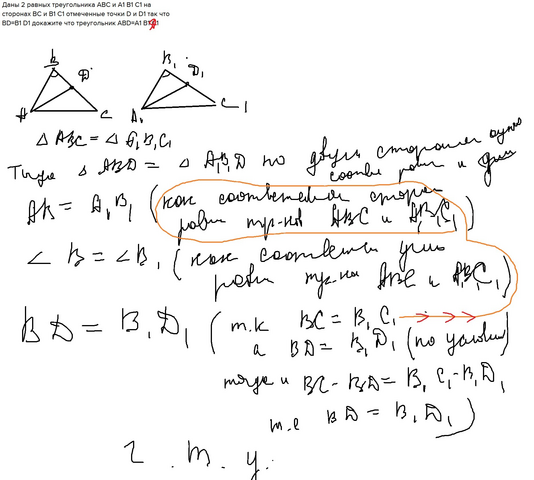 Даны 2 равных треугольника ABC и A1 B1 C1 на
сторонах BC и B1 C1 отмеченные точки D и D1 так что
BD=B1 D1 докажите что треугольник ABD=A1 B1
B D A C
B1 D1 A1 C1
△ ABC = △ A1B1C1
Тогда △ ABD = △ A1B1D по двум сторонам
соотв равн и
AB = A1B1 (как соответствен сторон
равн тр-ков ABC и A1B1C1)
∠ B = ∠B1 (как соответств углы
равн тр-ка ABC и A1B1C1)
BD = B1D1 (т.к BC = B1C1
а BD = B1D1 (по условию)
тогда и BC - BD = B1C1 - B1D1
т.е BD = B1D1)
т. у.